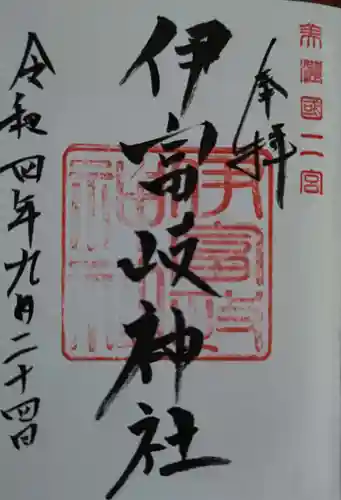 美濃國二宮
奉拝
伊富岐神社
令和四年九月二十四日
伊富岐
神社